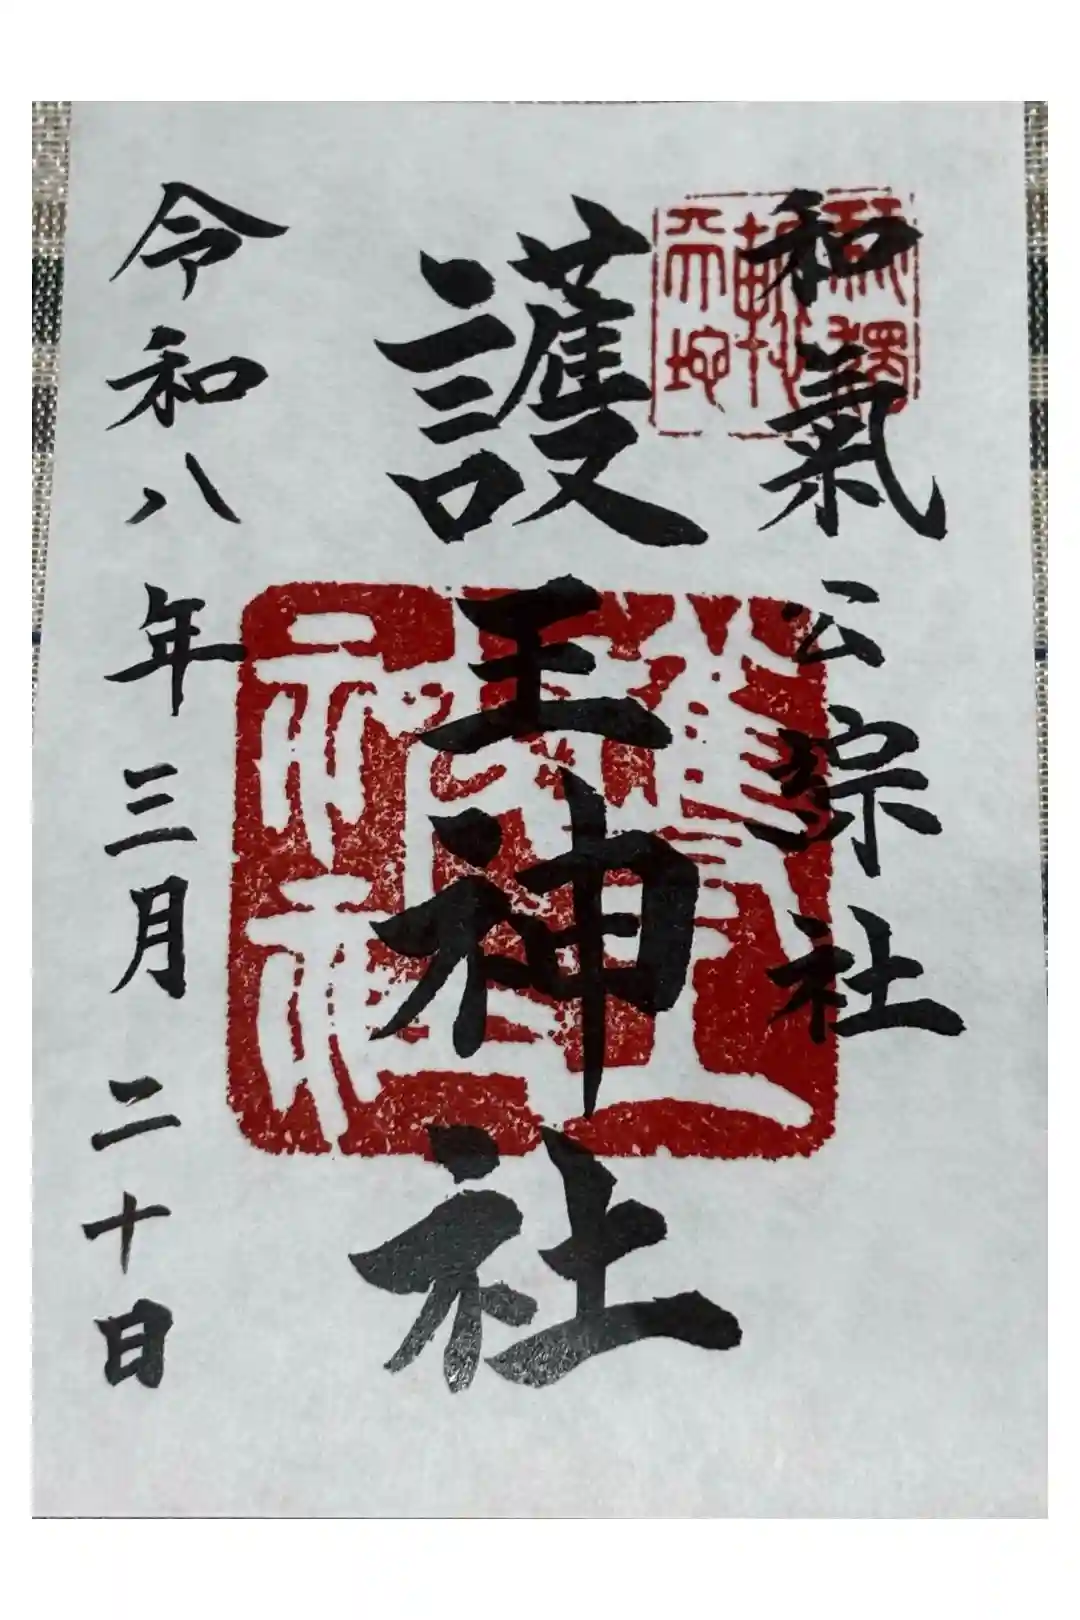 和氣公宗社
護王神社
令和八年三月二十日